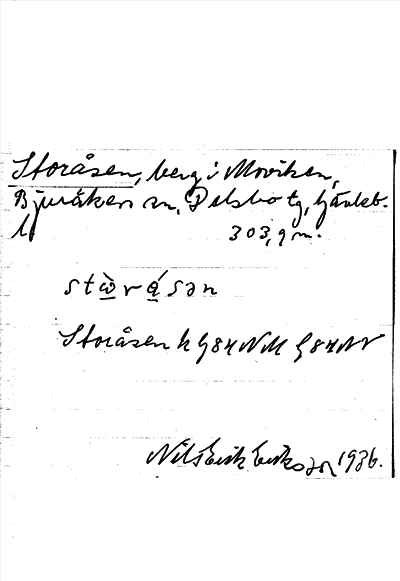 Storåsen, berg i Moviken,
Bjuråkers sn, Delsbo tg, Gävleb.
l. 303,9 m.
stὼrá̱sən
Storåsen h G84NM G84NV
Nils Erik Eriksson 1936.